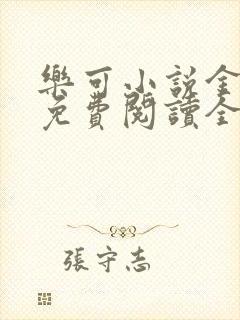 樂可小說全
免費閱讀全
張守志